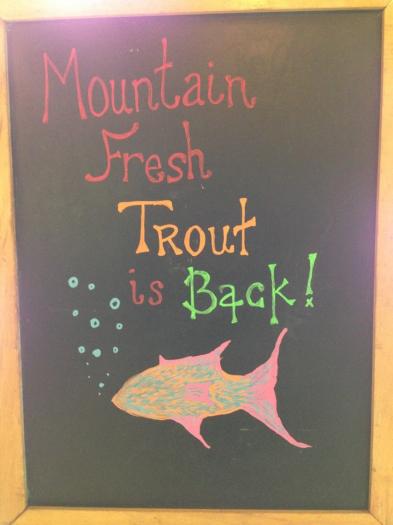 Mountain
Fresh
Trout
is Back!